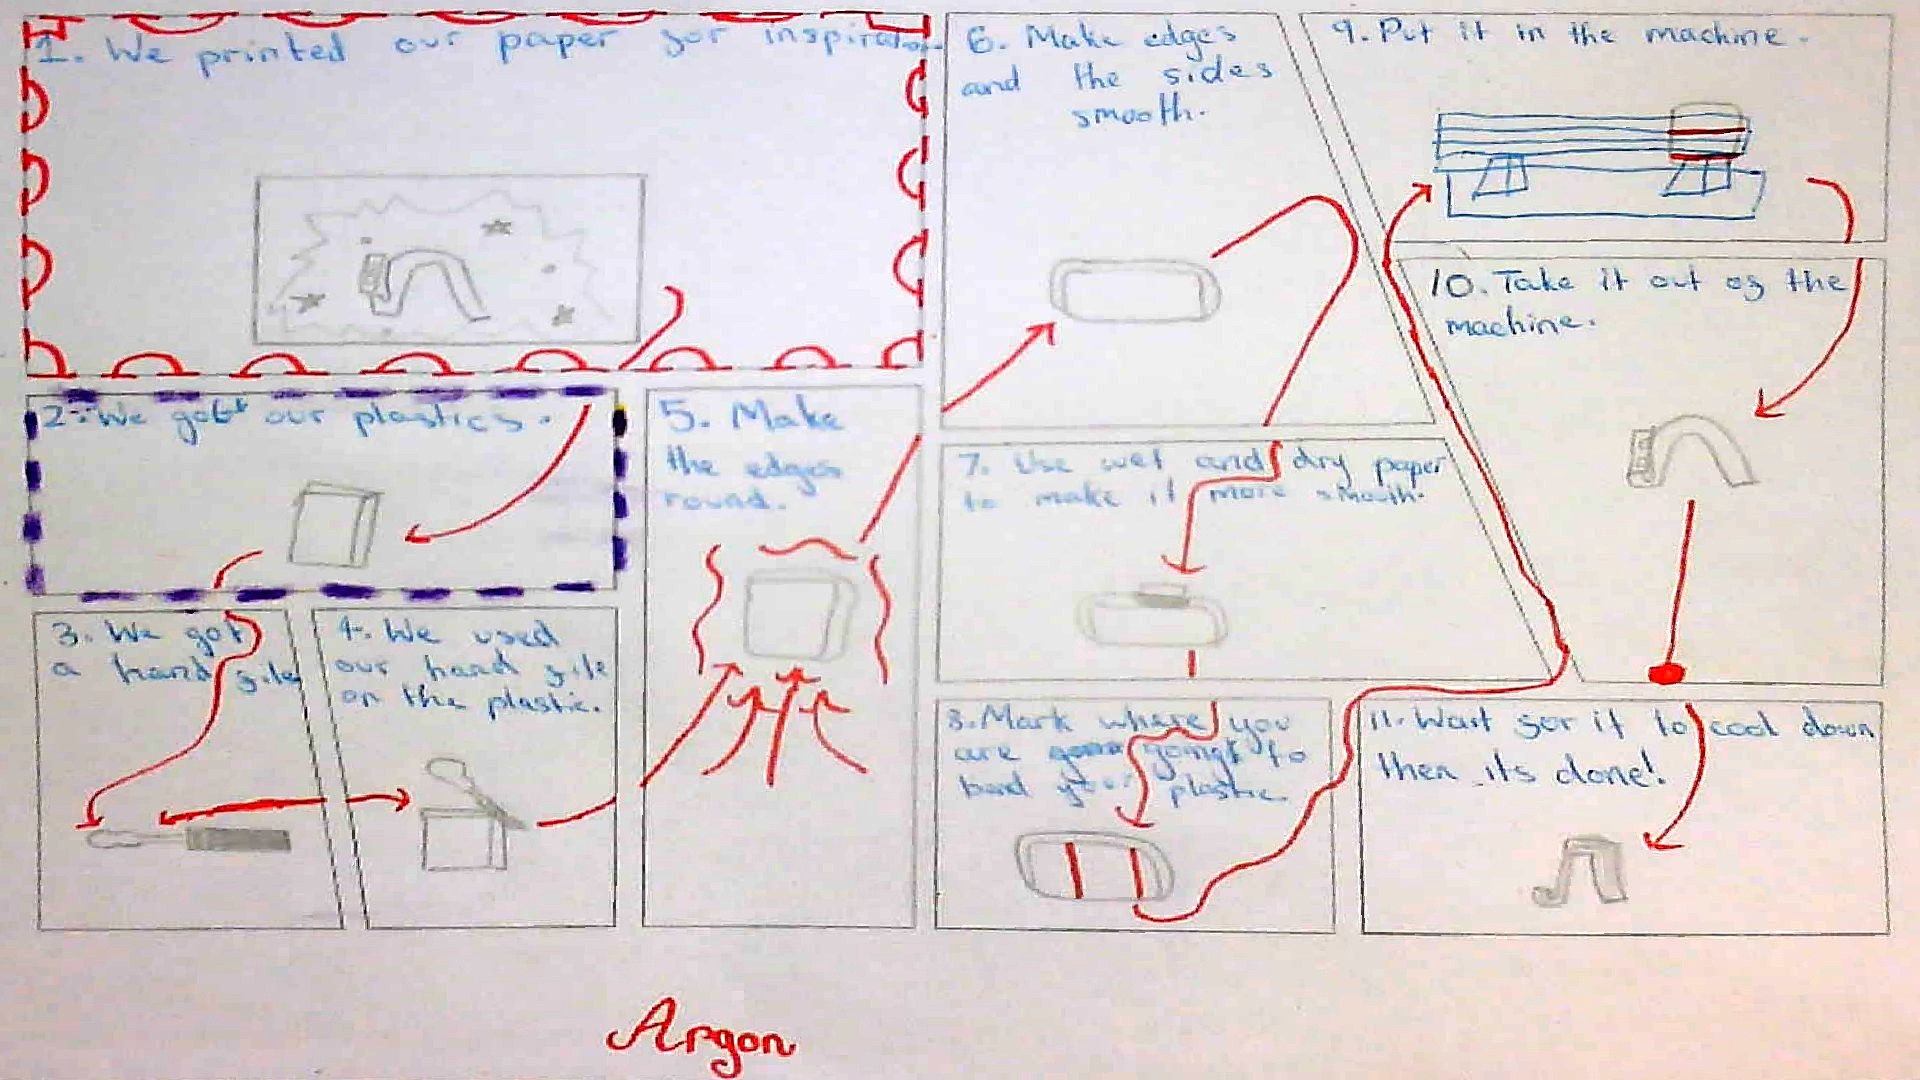 1. We printed our paper for inspiration.
2. We got our plastics.
3. We got
a hand file
4. We used
our hand file
on the plastic.
5. Make
the edges
round.
6. Make edges
and the sides
smooth.
7. Use wet and dry paper
to make it more smooth.
8. Mark where you
are going to
bend your plastic.
9. Put it in the machine.
10. Take it out of the
machine.
11. Wait for it to cool down
then its done!
Argon